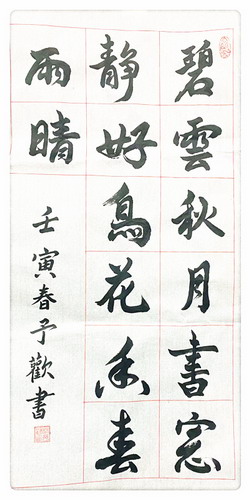 碧雲秋月書窓
静好鳥花香春
雨晴
壬寅春予歡書